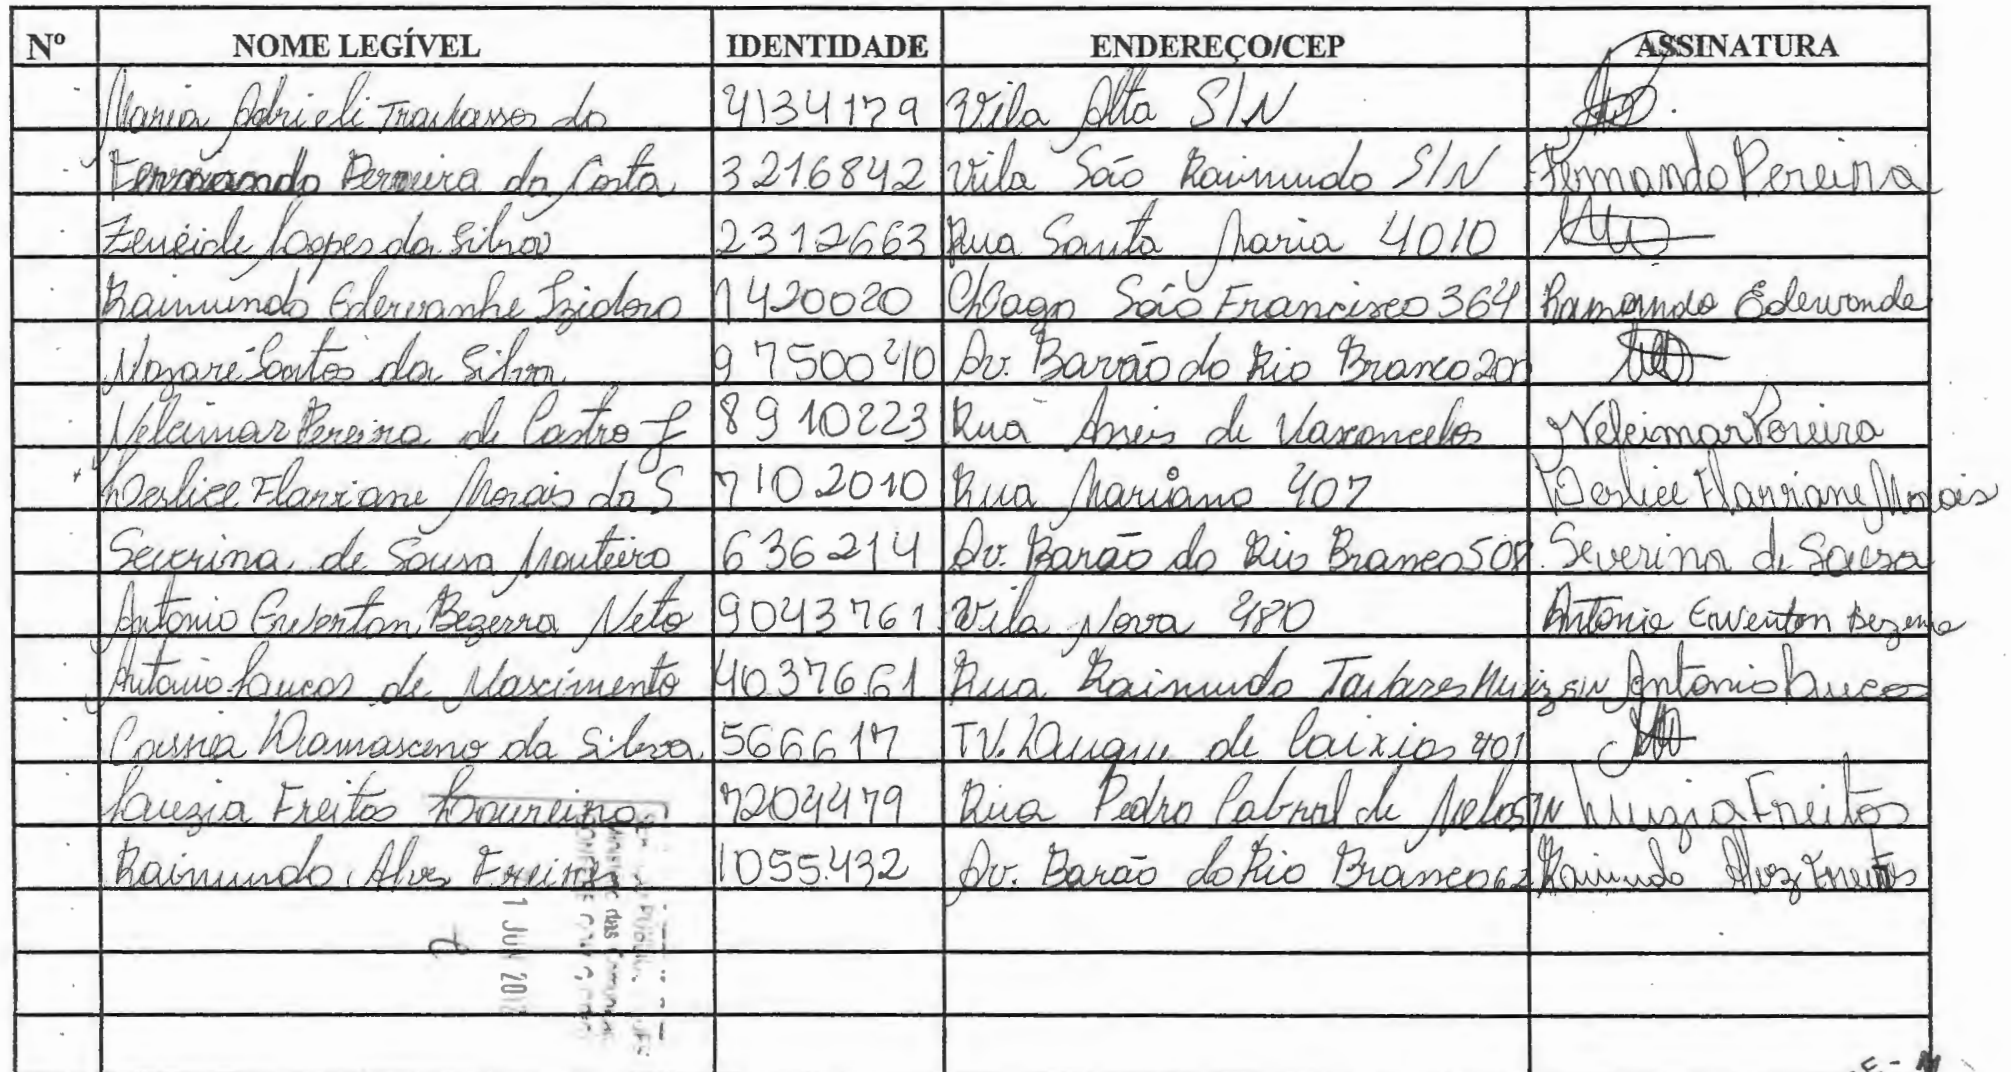 Nº NOME LEGÍVEL IDENTIDADE ENDEREÇO/CEP ASSINATURA
Maria Adrieli Travassos da 4134179 Vila Alta S/N
Fernando Pereira da Costa 3216842 Vila São Raimundo S/N Fernando Pereira
Zeneide Lopes da Silva 2312663 Rua Santa Maria 4010
Raimundo Edervanhe Izidoro 1420020 São Francisco 364 Raimundo Edervande
Nazaré Santos da Silva 9750040 Av. Barão do Rio Branco 200
Neleimar Pereira de Castro 8910223 Rua de Vasconcelos Neleimar Pereira
Weslice Flanriane Morais da S 7102010 Rua Mariano 407 Weslice Flanriane Morais
Severina de Sousa Monteiro 636214 Av. Barão do Rio Branco 508 Severina de Souza
Antonio Ewerton Bezerra Neto 9043761 Vila Nova 480 Antonio Ewenton Bezerra
Antonio Lucas de Nascimento 4037661 Rua Raimundo Antonio Lucas
Damasceno da Silva 566617 TV. Duque de Caixias 401
Luzia Freitas Loureiro 7204479 Rua Pedro Cabral de Melo SN Luzia Freitos
Raimundo Alves Freire 1055.432 Av. Barão do Rio Branco 62 Raimundo
1 JUN